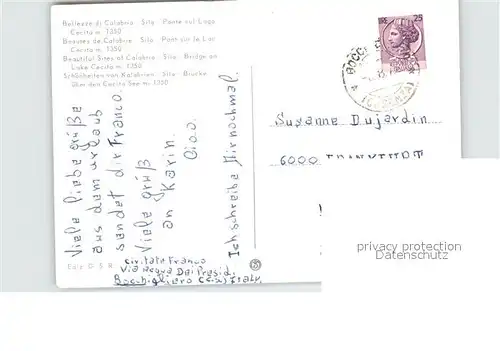 Bellezze di Calabria Sila Ponte sul Lago
Cecita m. 1350
Beautes de Calabre Sila Pont sur le Lac
Cecita m. 1350
Beautiful Sites of Calabria Sila Bridge on
Lake Cecita m. 1350
Schönheiten von Kalabrien Sila Brücke
über den Cecita See m. 1350
Viele liebe grüße
aus dem urlaub
sendet dir Franco.
Viele grüß
an Karin.
Ciao.
Ich schreibe Dir nochmal.
Civitate Franco
Via Acqua Dei
Bocchigliero (CS) Italy.
LIRE 25
BOCC
(COSENZA)
Susanne Dujardin
6000 FRANKFURT
privacy protection
Datenschutz